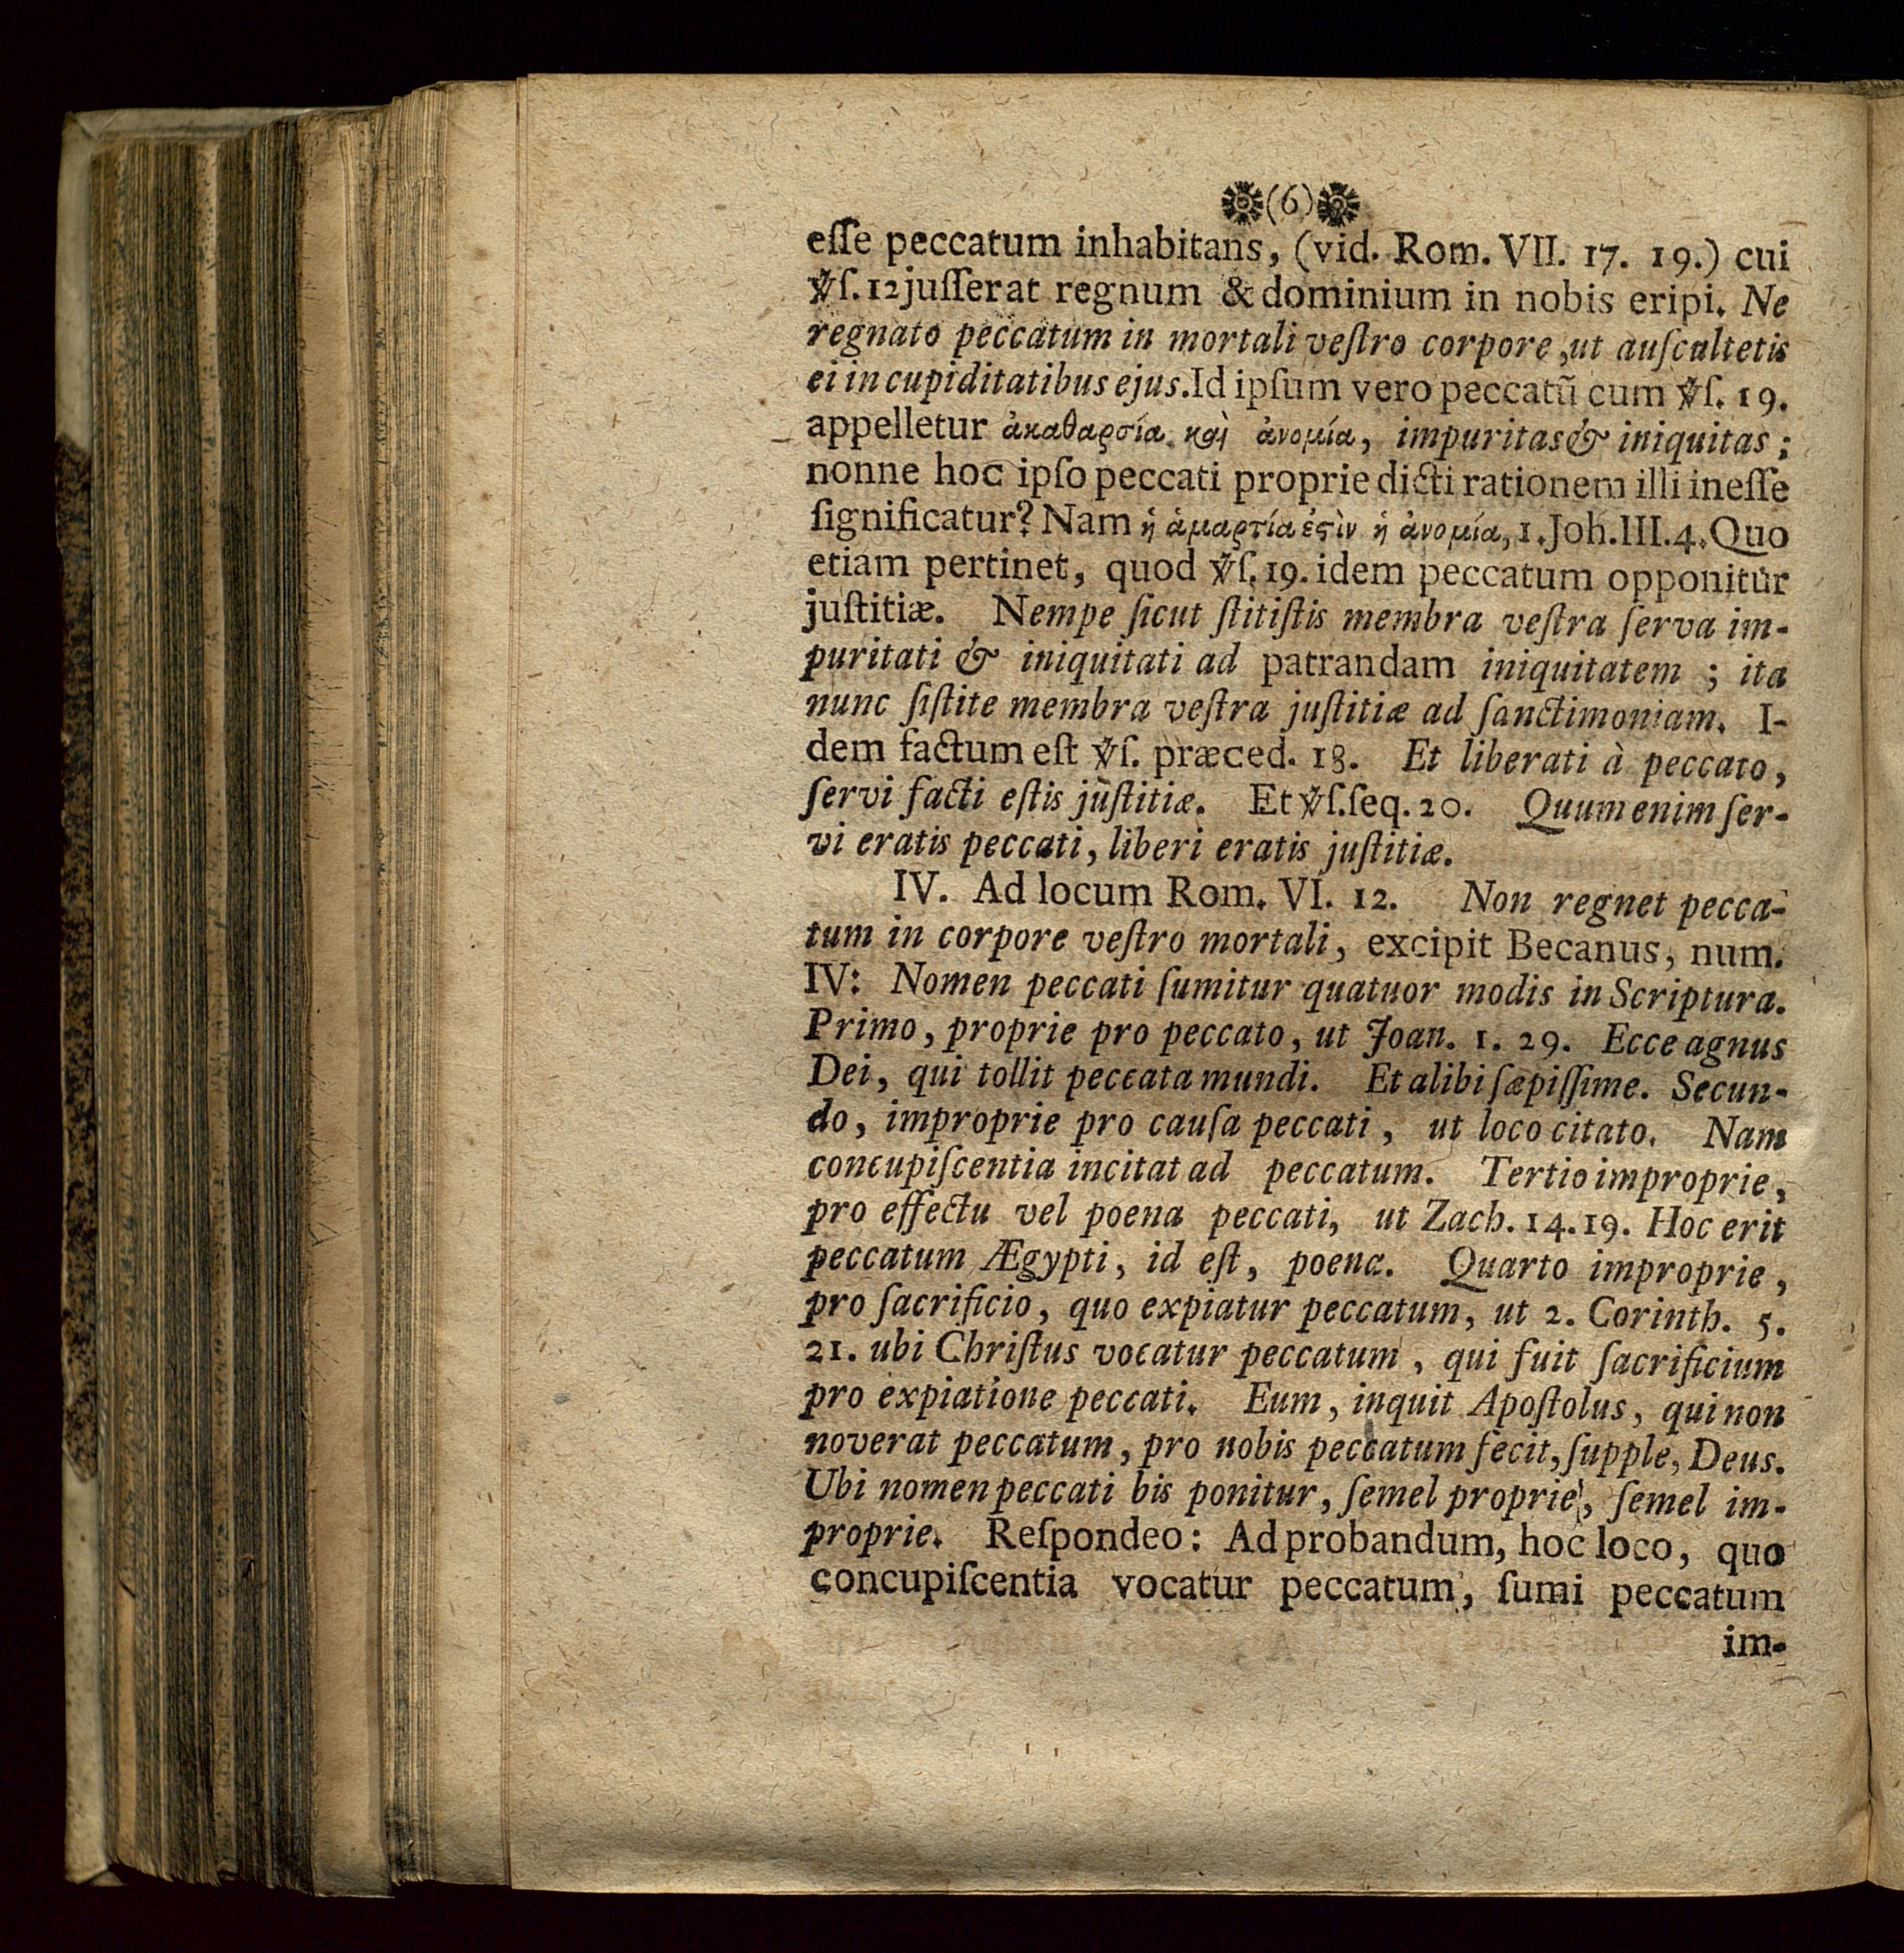 (6)
eſſe peccatum inhabitans, (vid. Rom. VII. 17. 19.) cui
℣ſ. 12 juſſerat regnum & dominium in nobis eripi. Ne
regnato peccatum in mortali veſtro corpore, ut auſcultetis
ei in cupiditatibus ejus. Id ipſum vero peccatũ cum ℣ſ. 19.
appelletur ἀκαθαρσία καὶ ἀνομία, impuritas & iniquitas;
nonne hoc ipſo peccati proprie dicti rationem illi ineſſe
ſignificatur? Nam ἡ ἁμαρτία ἐϛὶν ἡ ἀνομία, 1. Joh. III. 4. Quo
etiam pertinet, quod ℣ſ. 19. idem peccatum opponitur
juſtitiæ. Nempe ſicut ſtitiſtis membra veſtra ſerva im-
puritati & iniquitati ad patrandam iniquitatem; ita
nunc ſiſtite membra veſtra juſtitiæ ad ſanctimoniam. I-
dem factum eſt ℣ſ. præced. 18. Et liberati à peccato,
ſervi facti eſtis juſtitiæ. Et ℣ſ. ſeq. 20. Quum enim ſer-
vi eratis peccati, liberi eratis juſtitiæ.
IV. Ad locum Rom. VI. 12. Non regnet pecca-
tum in corpore veſtro mortali, excipit Becanus, num.
IV: Nomen peccati ſumitur quatuor modis in Scriptura.
Primo, proprie pro peccato, ut Joan. 1. 29. Ecce agnus
Dei, qui tollit peccata mundi. Et alibi ſæpiſſime. Secun-
do, improprie pro cauſa peccati, ut loco citato. Nam
concupiſcentia incitat ad peccatum. Tertio improprie,
pro effectu vel poena peccati, ut Zach. 14. 19. Hoc erit
peccatum Ægypti, id eſt, poena. Quarto improprie,
pro ſacrificio, quo expiatur peccatum, ut 2. Corinth. 5.
21. ubi Chriſtus vocatur peccatum, qui fuit ſacrificium
pro expiatione peccati. Eum, inquit Apoſtolus, qui non
noverat peccatum, pro nobis peccatum fecit, ſupple, Deus.
Ubi nomen peccati bis ponitur, ſemel proprie, ſemel im-
proprie. Reſpondeo: Ad probandum, hoc loco, quo
concupiſcentia vocatur peccatum, ſumi peccatum
im-